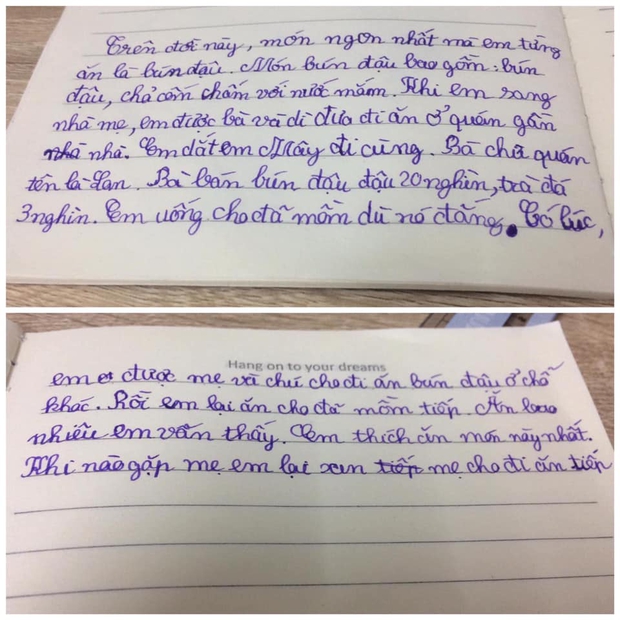 Trên đời này, món ngon nhất mà em từng
ăn là bún đậu. Món bún đậu bao gồm: bún
đậu, chả cốm chấm với nước mắm. Khi em sang
nhà mẹ, em được bà và dì đưa đi ăn ở quán gần
nhà nhà. Em dắt em Mây đi cùng. Bà chủ quán
tên là Lan. Bà bán bún đậu đậu 20 nghìn, trà đá
3 nghìn. Em uống cho đã mồm dù nó đắng. Có lúc,
Hang on to your dreams
em được mẹ và chú cho đi ăn bún đậu ở chỗ
khác. Rồi em lại ăn cho đã mồm tiếp. Ăn bao
nhiêu em vẫn thấy. Em thích ăn món này nhất.
Khi nào gặp mẹ em lại xin tiếp mẹ cho đi ăn tiếp